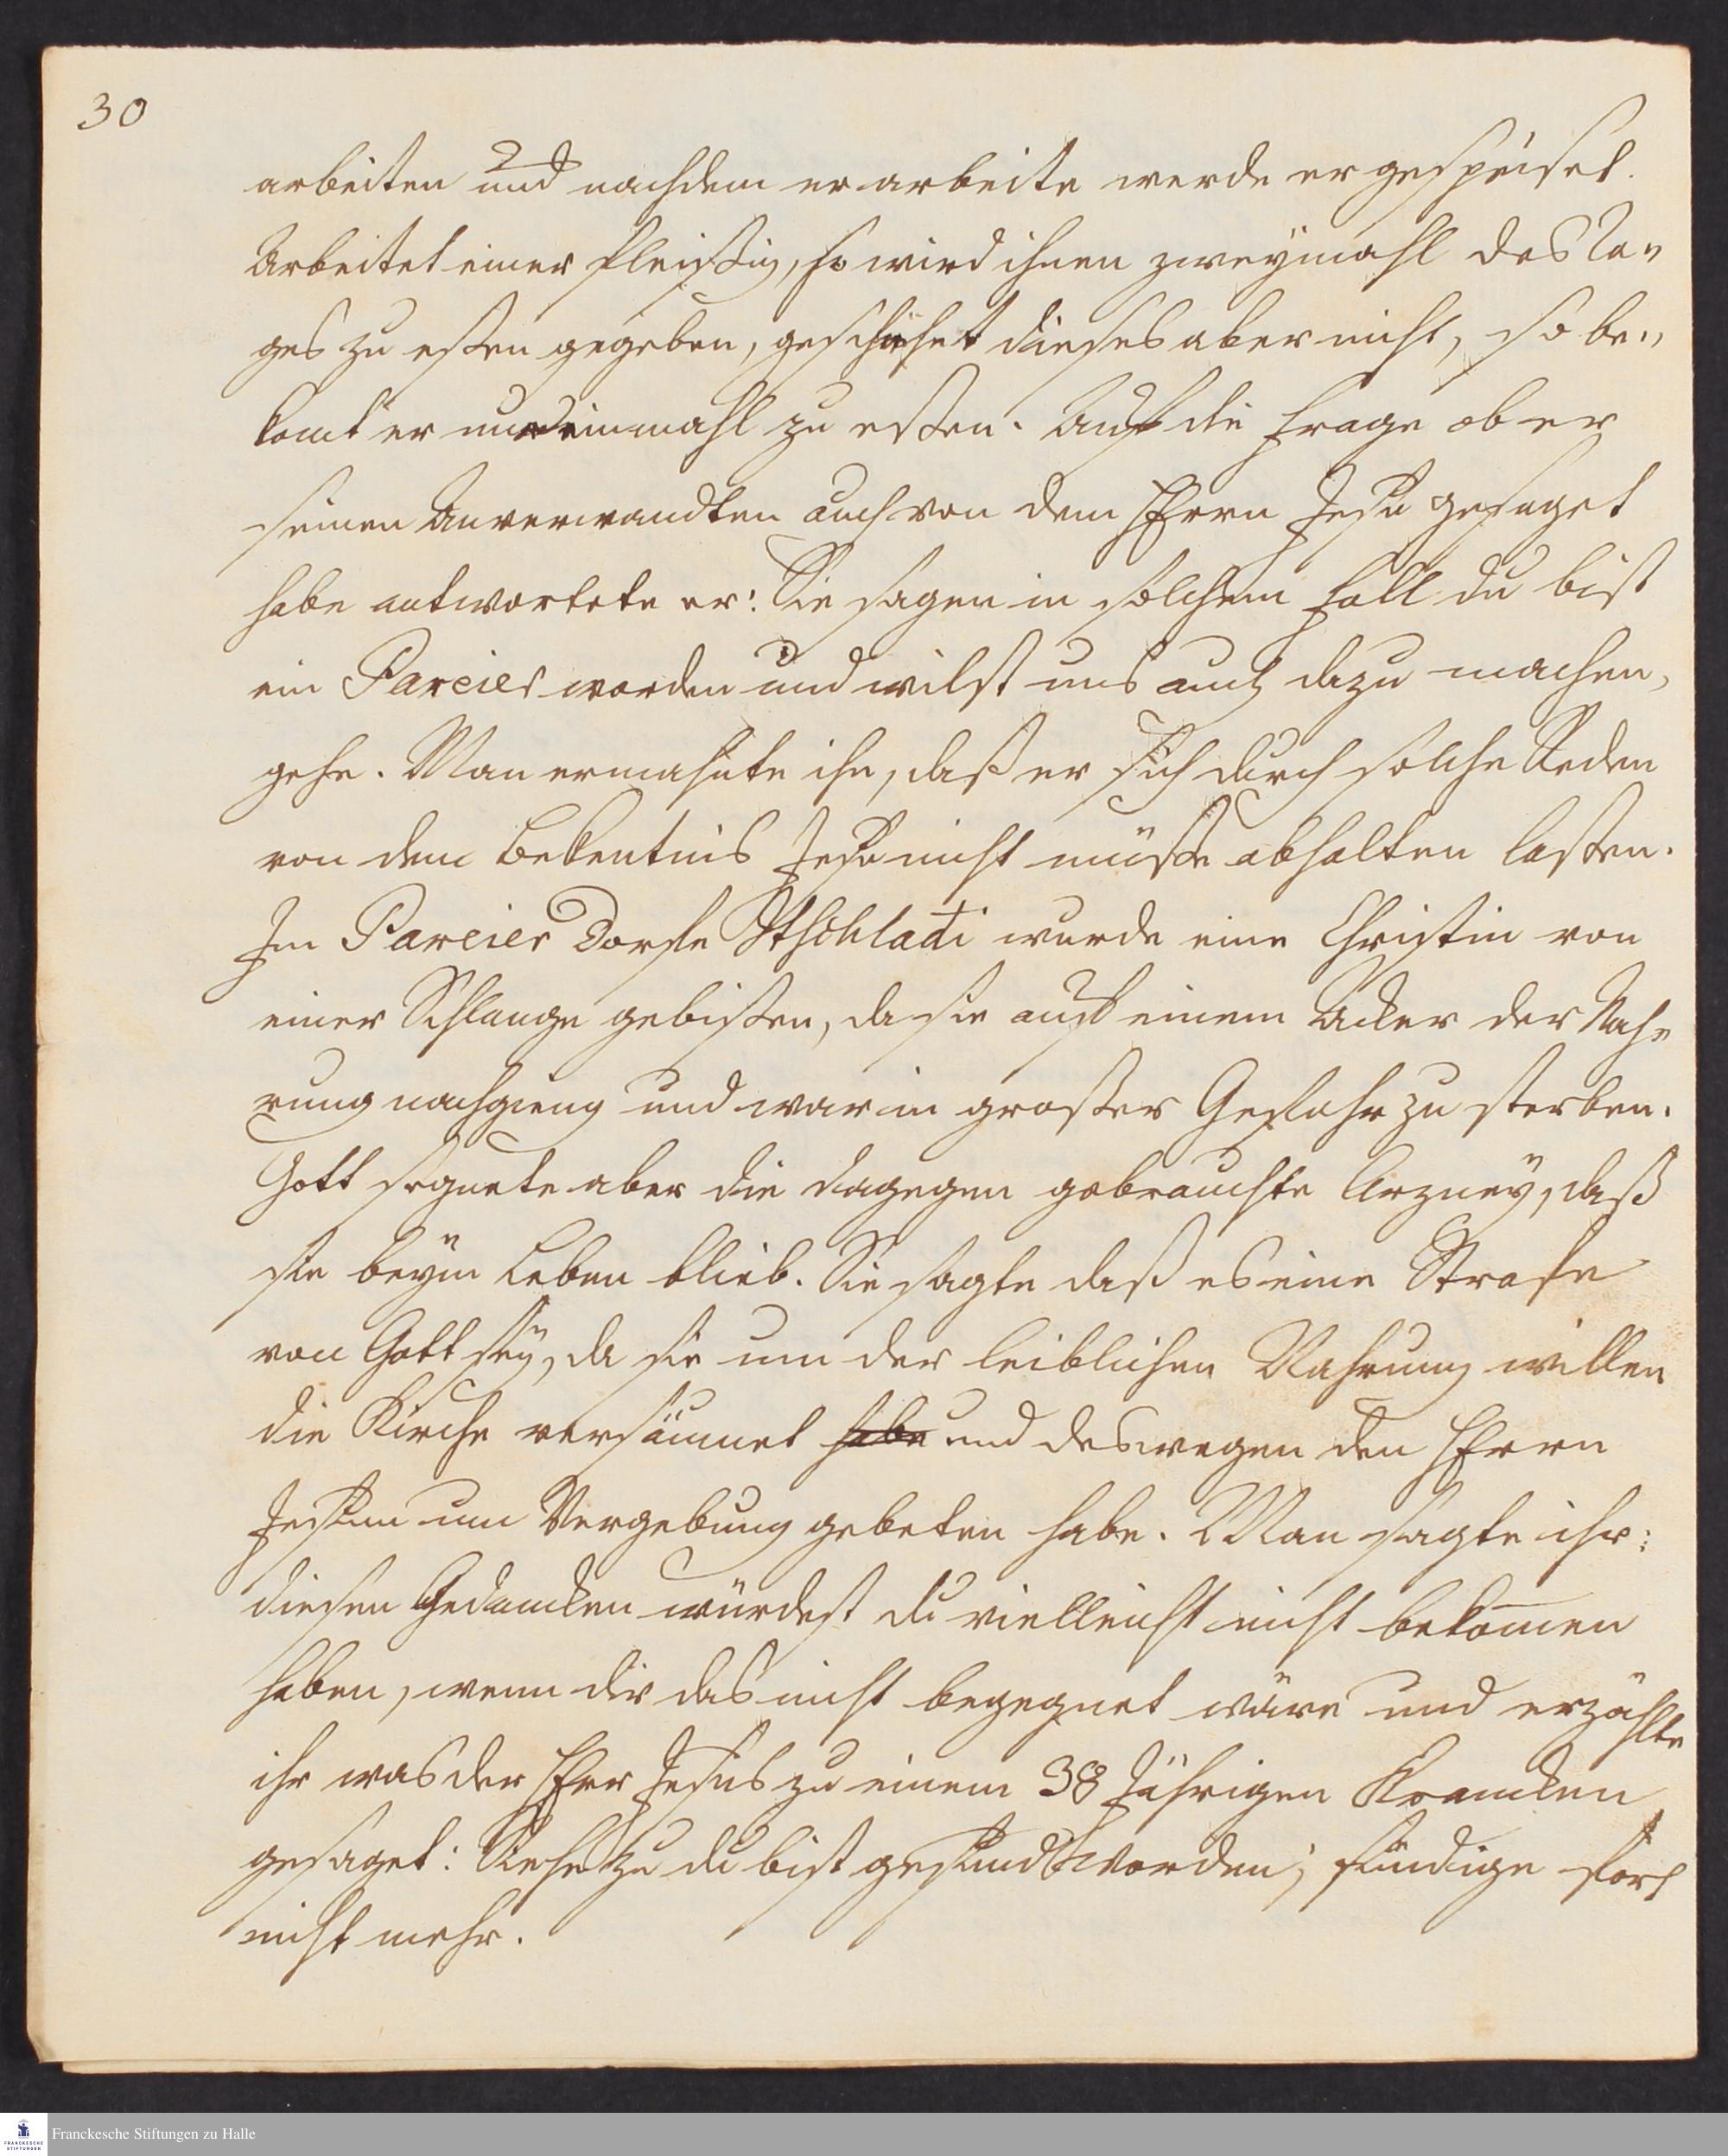 30
arbeiten und nachdem er arbeite werde er gespeiset.
Arbeitet einer fleißig, so wird ihnen zweymahl des Ta-
ges zu eßen gegeben, geschiehet dieses aber nicht, so be-
komt er nur einmahl zu eßen. Auf die Frage ob er
seinen Anverwandten auch von dem HErrn Jesu gesaget
habe antwortete er: Sie sagen in solchem Fall du bist
ein Pareier worden und wilst uns auch dazu machen,
gehe. Man ermahnte ihn, daß er sich durch solche Reden
von dem Bekentnis Jesu nicht müße abhalten laßen.
Im Pareier Dorfe wurde eine Christin von
einer Schlange gebißen, da sie auf einem Acker der Nah-
rung nachgieng und war in großer Gefahr zu sterben.
Gott segnete aber die dagegen gebrauchte Arzney, daß
sie beym Leben blieb. Sie sagte daß es eine Strafe
von Gott sey, da sie um der leiblichen Nahrung willen
die Kirche versäumet habe und deswegen den HErrn
Jesum um Vergebung gebeten habe. Man sagte ihr:
diesen Gedancken würdest du vielleicht nicht bekom̄en
haben, wenn dir das nicht begegnet wäre und erzählte
ihr was der HErr Jesus zu einem 38 Jährigen Krancken
gesaget: Siehe zu du bist gesund worden; sündige fort
nicht mehr.
FRANCKESCHE
STIFTUNGEN
Franckesche Stiftungen zu Halle